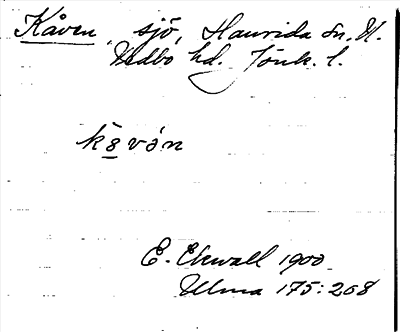 Kåven, sjö, Haurida sn. N.
Vedbo hd. Jönk. l.
kɜ̀vón
E. Ekwall 1900
Ulma 175:268